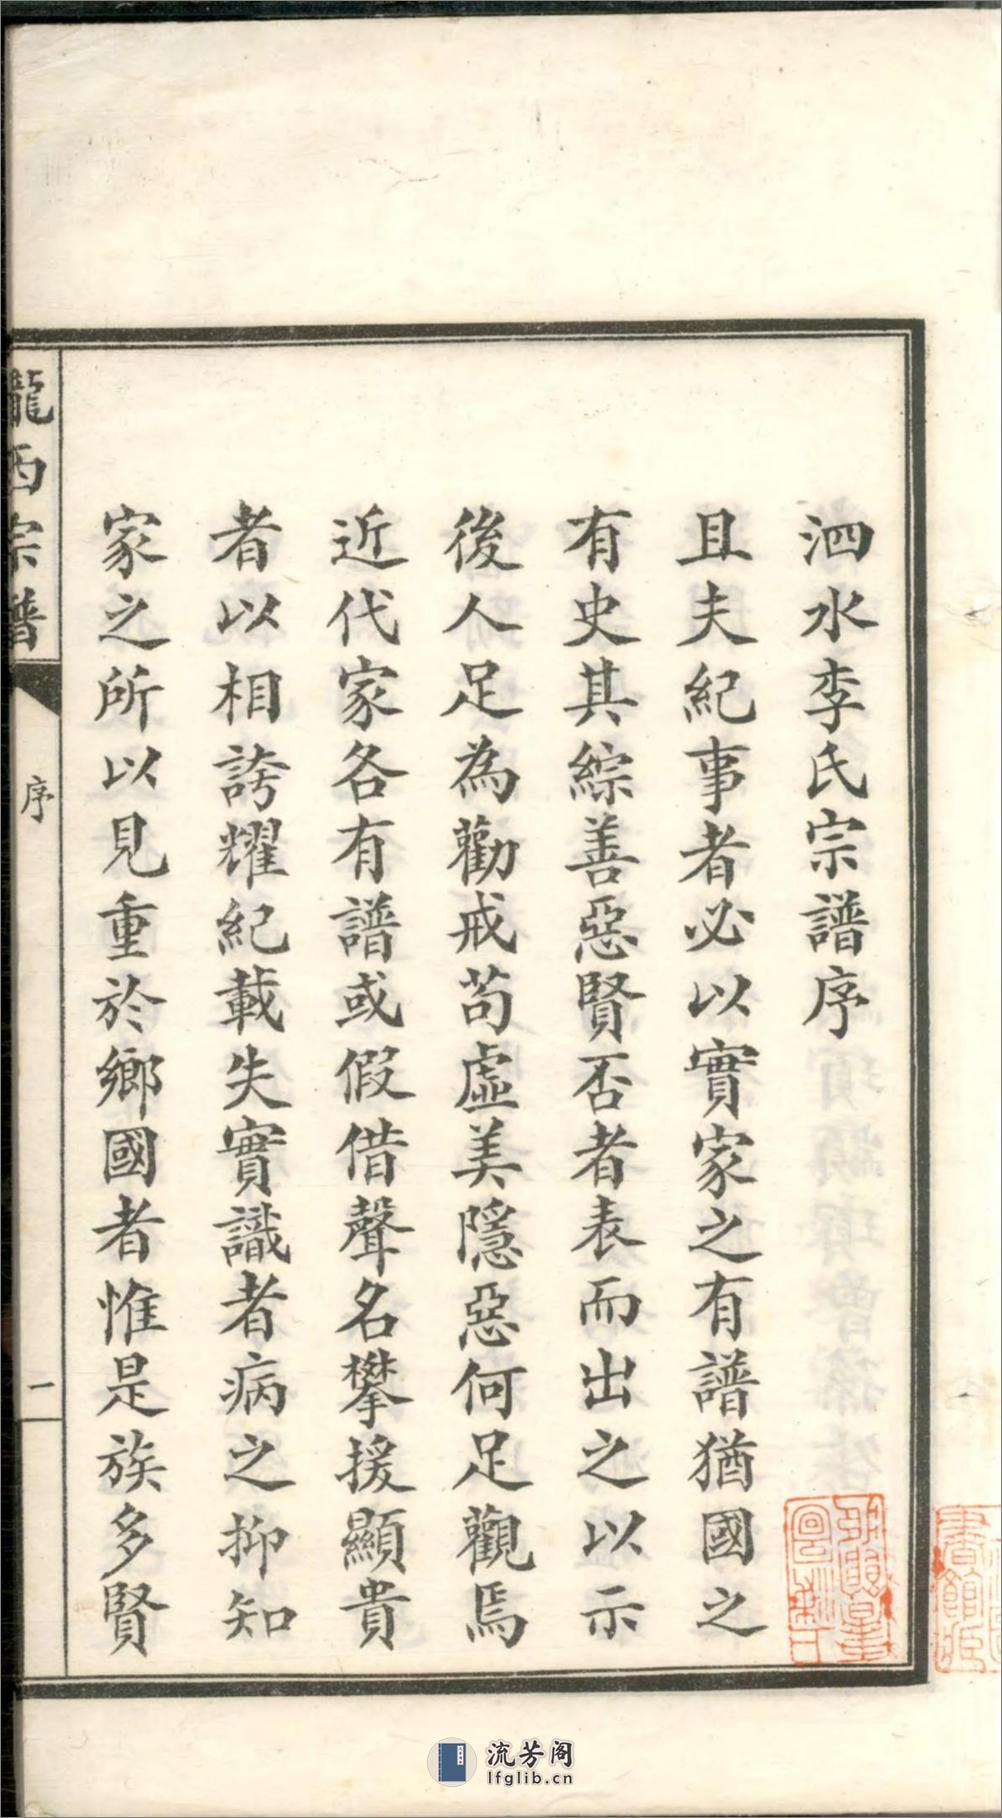 泗水李氏宗譜序
且夫紀事者必以實家之有譜猶國之
有史其綜善惡賢否者表而出之以示
後人足為勸戒苟虛美隱惡何足觀焉
近代家各有譜或假借聲名攀援顯貴
者以相誇耀紀載失實識者病之抑知
家之所以見重於鄉國者惟是族多賢
隴西宗譜
序
一
流芳阁
lfglib.cn